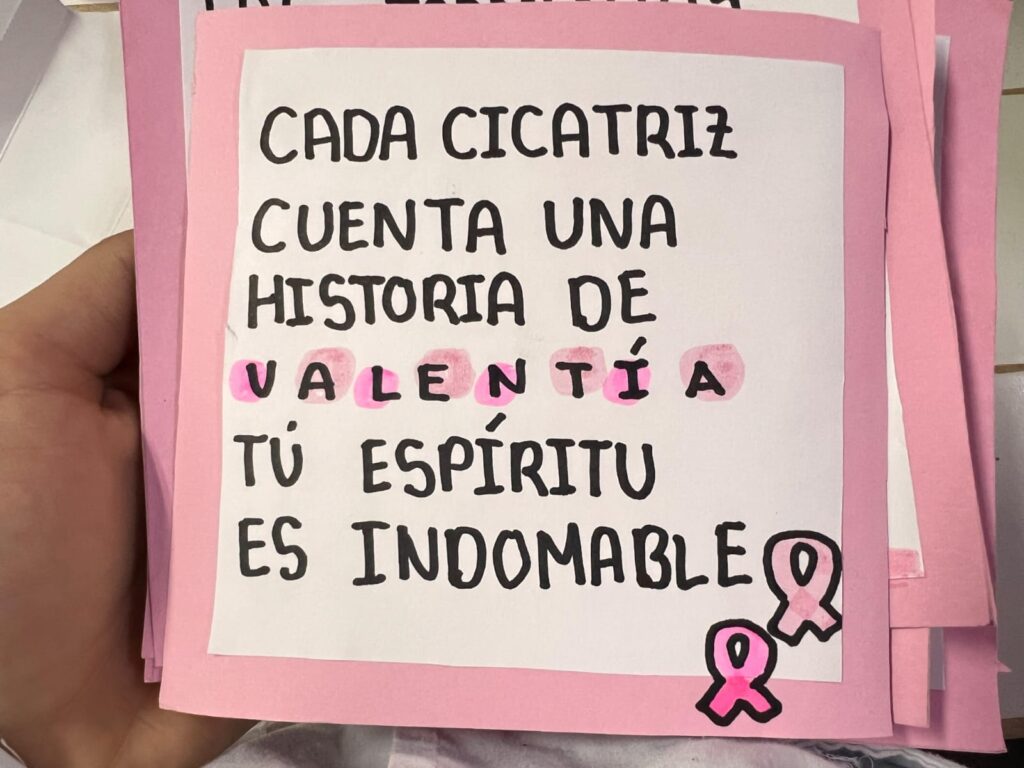 CADA CICATRIZ
CUENTA UNA
HISTORIA DE
VALENTÍA
TÚ ESPÍRITU
ES INDOMABLE